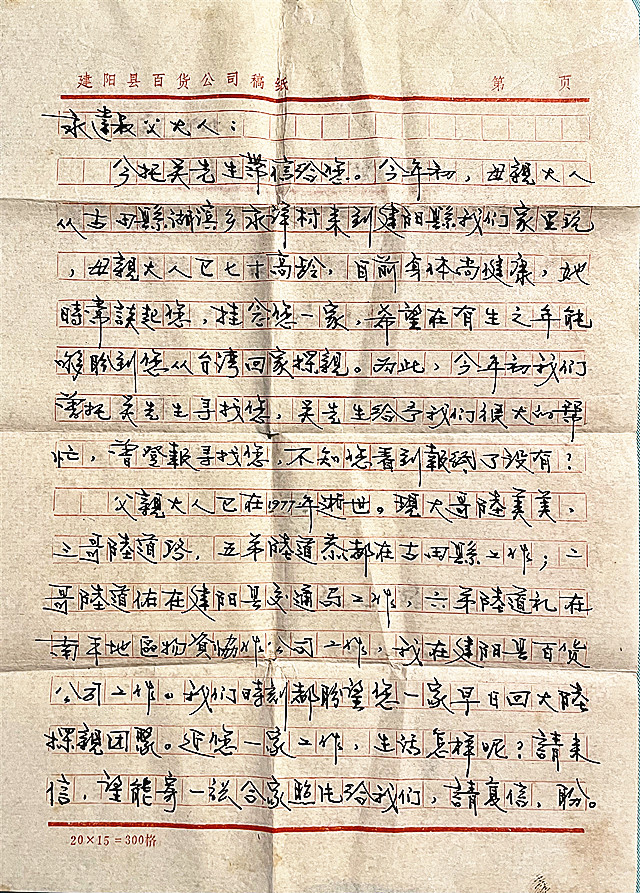 建阳县百货公司稿纸 第 页
永達叔父大人：
今托吴先生帶信给您。今年初，母親大人
从古田縣湖滨乡永洋村来到建阳縣我们家里玩
，母親大人已七十高龄，目前身体尚健康，她
時常談起您，挂念您一家，希望在有生之年能
夠盼到您从台湾回家探親。为此，今年初我们
曾托吴先生寻找您，吴先生给予我们很大的帮
忙，曾登報寻找您，不知您看到報紙了没有？
父親大人已在1977年逝世。現大哥陸美美、
三哥陸道路，五弟陸道恭都在古田縣工作；二
哥陸道佑在建阳县交通局工作，六弟陸道礼在
南平地區物資協作公司工作，我在建阳县百货
公司工作。我们時刻都盼望您一家早日回大陸
探親团聚。近您一家工作，生活怎样呢？請来
信，望能寄一张合家照片给我们，請复信，盼。
20×15=300格